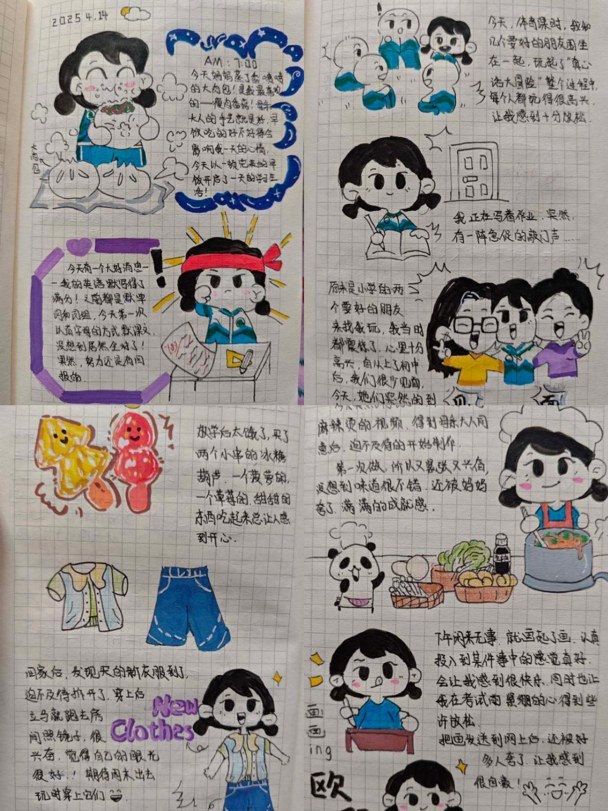 2025.4.14
AM：7:00
今天妈妈蒸了香喷喷
的大肉包！是我最喜欢
大人的手艺就是好，早
饭吃的好不好将会
影响我一天的心情，
今天从一顿完美的早
饭开启了一天的学习生
活！
大肉包
今天有一个大好消息—
—我的英语默写得了
满分！之前都是默单
词和词组，今天第一次
以直字母的方式默课文
没想到居然全对了！
果然，努力还是有回
报的
今天，体育课时，我和
几个要好的朋友围坐
在一起，玩起了“真心
话大冒险”整个过程中
每个人都玩得很高兴，
让我感到十分放松
我正在写着作业，突然，
有一阵急促的敲门声……
原来是小学的两
个要好的朋友
来找我玩，我当时
都震惊了，心里十分
高兴，自从上了初中
后，我们很少见面，
今天，她们突然的到
放学后太饿了，买了
两个小串的冰糖
葫芦，一个菠萝的，
一个草莓的，甜甜的
东西吃起来总让人感
到开心．
回家后，发现买的新衣服到了，
迫不及待拆开了，穿上后
立马就跑去房
间照镜子，很
兴奋，觉得自己的眼光
很好！！期待周末出去
玩时穿上它们
New
Clothes
麻辣烫的视频，得到母亲大人同
意后，迫不及待的开始制作
第一次做，所以又紧张又兴奋，
没想到味道很不错，还被妈妈
夸了，满满的成就感．
下午闲来无事，就画起了画，认真
投入到某件事中的感觉真好，
会让我感到很快乐，同时也让
我在考试周里烦的心得到些
许放松
把画发送到网上后，还被好
多人夸了，让我感到
很自豪！
画
画
ing
欧